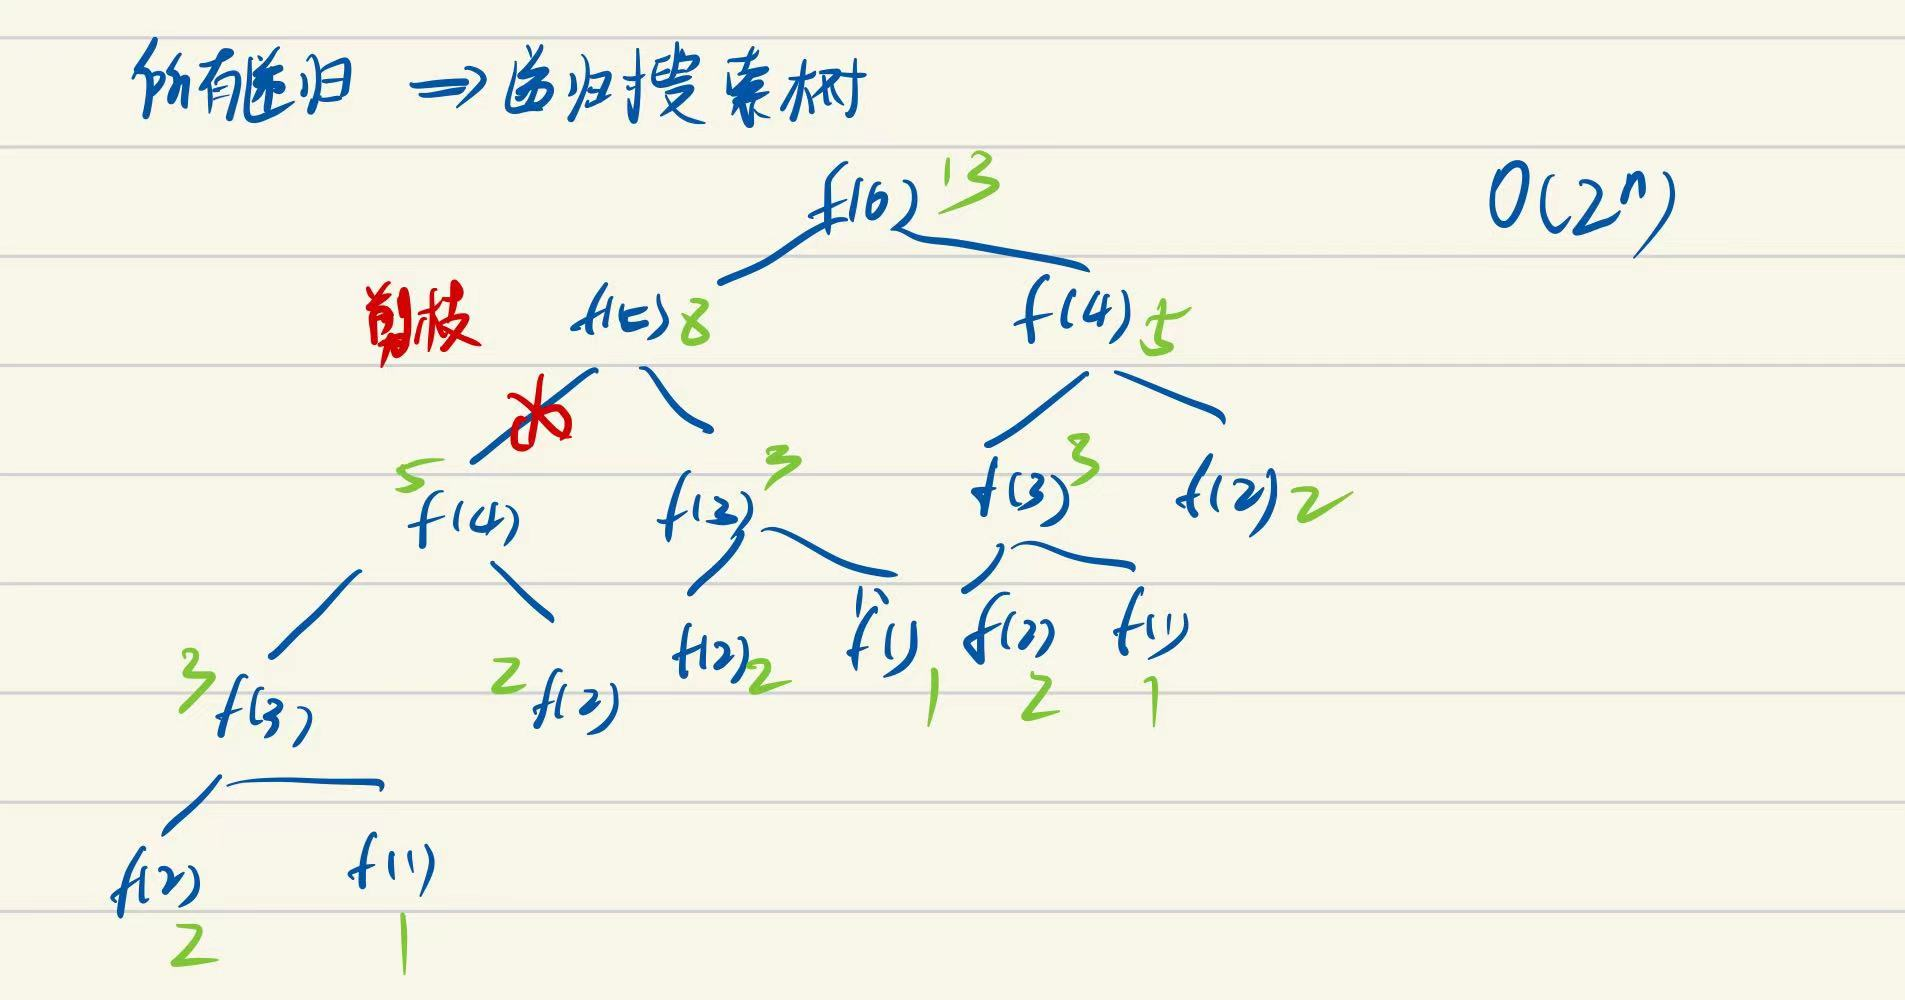 所有递归 ⇒ 递归搜索树
f(6) 13
O(2ⁿ)
剪枝
f(5) 8
f(4) 5
5 f(4)
f(3) 3
f(3) 3
f(2) 2
3 f(3)
2 f(2)
f(2) 2
f(1) 1
f(2) 2
f(1) 1
f(2) 2
f(1) 1